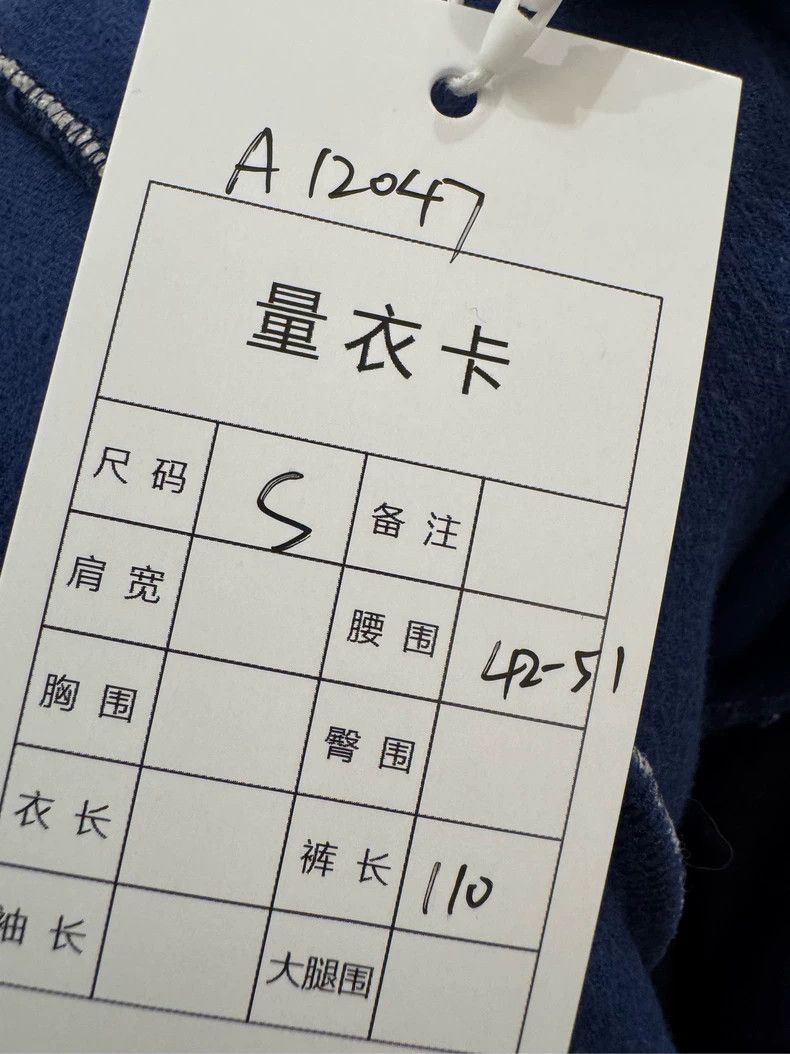 A 12047
量衣卡
尺码 S 备注
肩宽 腰围 42-51
胸围 臀围
衣长 裤长 110
袖长 大腿围